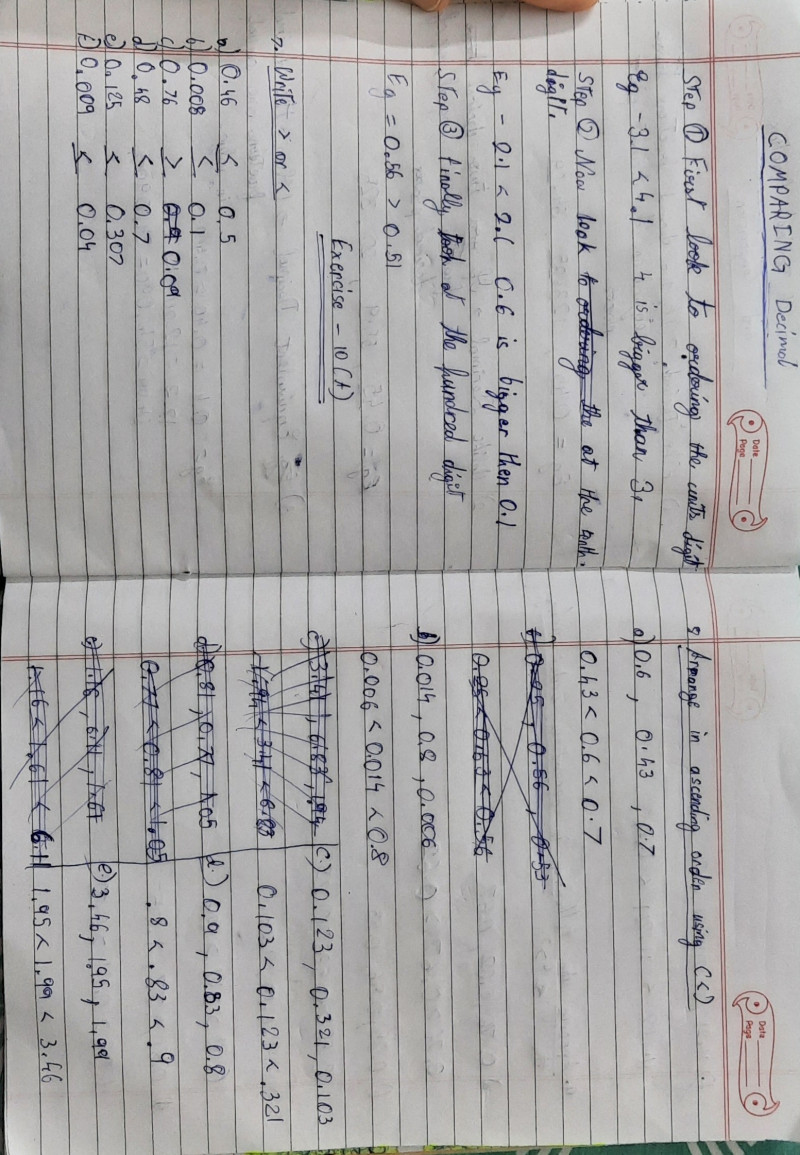 COMPARING Decimal
Date
Page
Step ① First look to ordering the units digit
Eg - 3.1 < 4.1 4 is bigger than 3.
Step ② Now look to ordering the at the tenth.
digit.
Eg - 2.1 < 2.6 0.6 is bigger then 0.1
Step ③ Finally look at the hundred digit
Eg = 0.56 > 0.51
Exercise - 10(A)
1. Write > or <
a) 0.46 < 0.5
b) 0.008 < 0.1
c) 0.76 > 0.09
d) 0.48 < 0.7
e) 0.125 < 0.307
f) 0.009 < 0.04
Date
Page
2 Arrange in ascending order using (<)
a) 0.6, 0.43, 0.7
0.43 < 0.6 < 0.7
b) 0.014, 0.8, 0.006
0.006 < 0.014 < 0.8
c) 0.123, 0.321, 0.103
0.103 < 0.123 < .321
d) 0.9, 0.83, 0.8
.8 < .83 < .9
e) 3.46, 1.95, 1.99
1.95 < 1.99 < 3.46